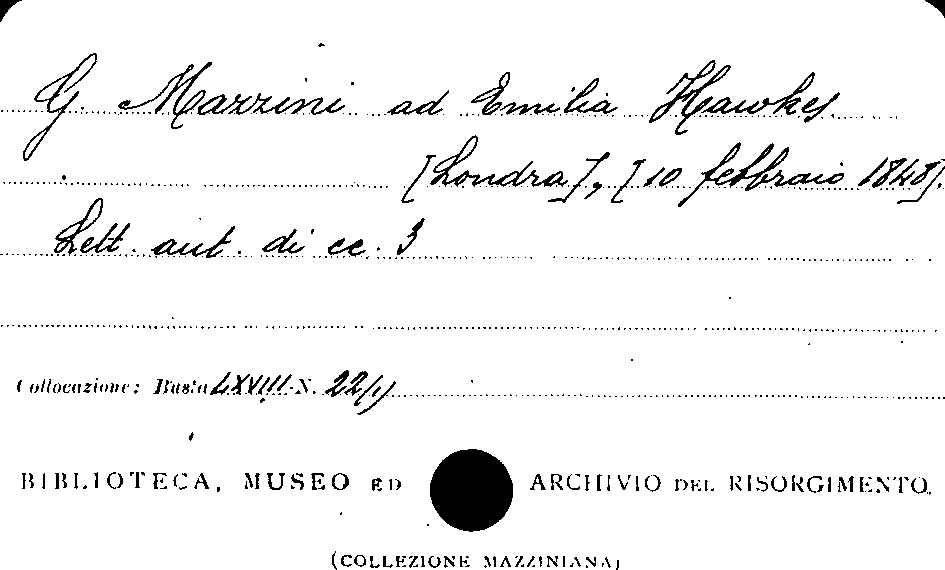 G. Mazzini ad Emilia Hawkes.
[Londra], [10 febbraio 1848].
Lett. aut. di cc. 3
Collocazione: Busta LXVIII N. 22/1)
BIBLIOTECA, MUSEO ED ARCHIVIO DEL RISORGIMENTO.
(COLLEZIONE MAZZINIANA)